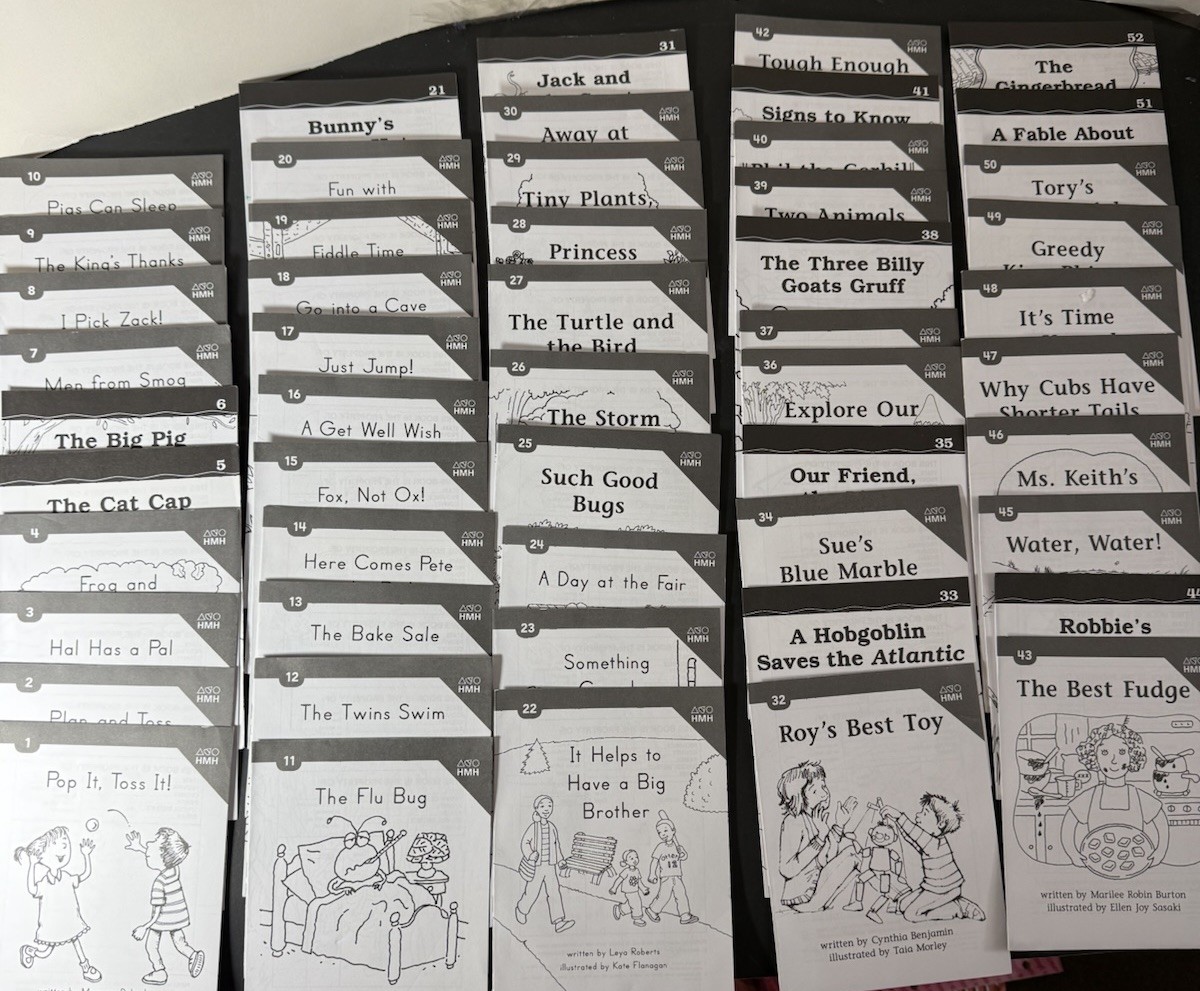 10
HMH
Pigs Can Sleep
9
HMH
The King's Thanks
8
HMH
I Pick Zack!
7
HMH
Men from Smog
6
The Big Pig
5
The Cat Cap
4
HMH
Frog and
3
HMH
Hal Has a Pal
2
HMH
Plan and Toss
1
HMH
Pop It, Toss It!
21
Bunny's
20
HMH
Fun with
19
HMH
Fiddle Time
18
HMH
Go into a Cave
17
HMH
Just Jump!
16
HMH
A Get Well Wish
15
HMH
Fox, Not Ox!
14
HMH
Here Comes Pete
13
HMH
The Bake Sale
12
HMH
The Twins Swim
11
HMH
The Flu Bug
31
Jack and
30
HMH
Away at
29
HMH
Tiny Plants
28
HMH
Princess
27
HMH
The Turtle and
the Bird
26
HMH
The Storm
25
HMH
Such Good
Bugs
24
HMH
A Day at the Fair
23
HMH
Something
22
HMH
It Helps to
Have a Big
Brother
written by Leya Roberts
illustrated by Kate Flanagan
42
HMH
Tough Enough
41
Signs to Know
40
HMH
"Phil the Gerbil"
39
HMH
Two Animals
38
The Three Billy
Goats Gruff
37
HMH
36
HMH
Explore Our
35
Our Friend,
34
HMH
Sue's
Blue Marble
33
A Hobgoblin
Saves the Atlantic
32
HMH
Roy's Best Toy
written by Cynthia Benjamin
illustrated by Taia Morley
52
The
Gingerbread
51
A Fable About
50
HMH
Tory's
49
HMH
Greedy
48
HMH
It's Time
47
HMH
Why Cubs Have
Shorter Tails
46
HMH
Ms. Keith's
45
HMH
Water, Water!
44
Robbie's
43
HMH
The Best Fudge
written by Marilee Robin Burton
illustrated by Ellen Joy Sasaki